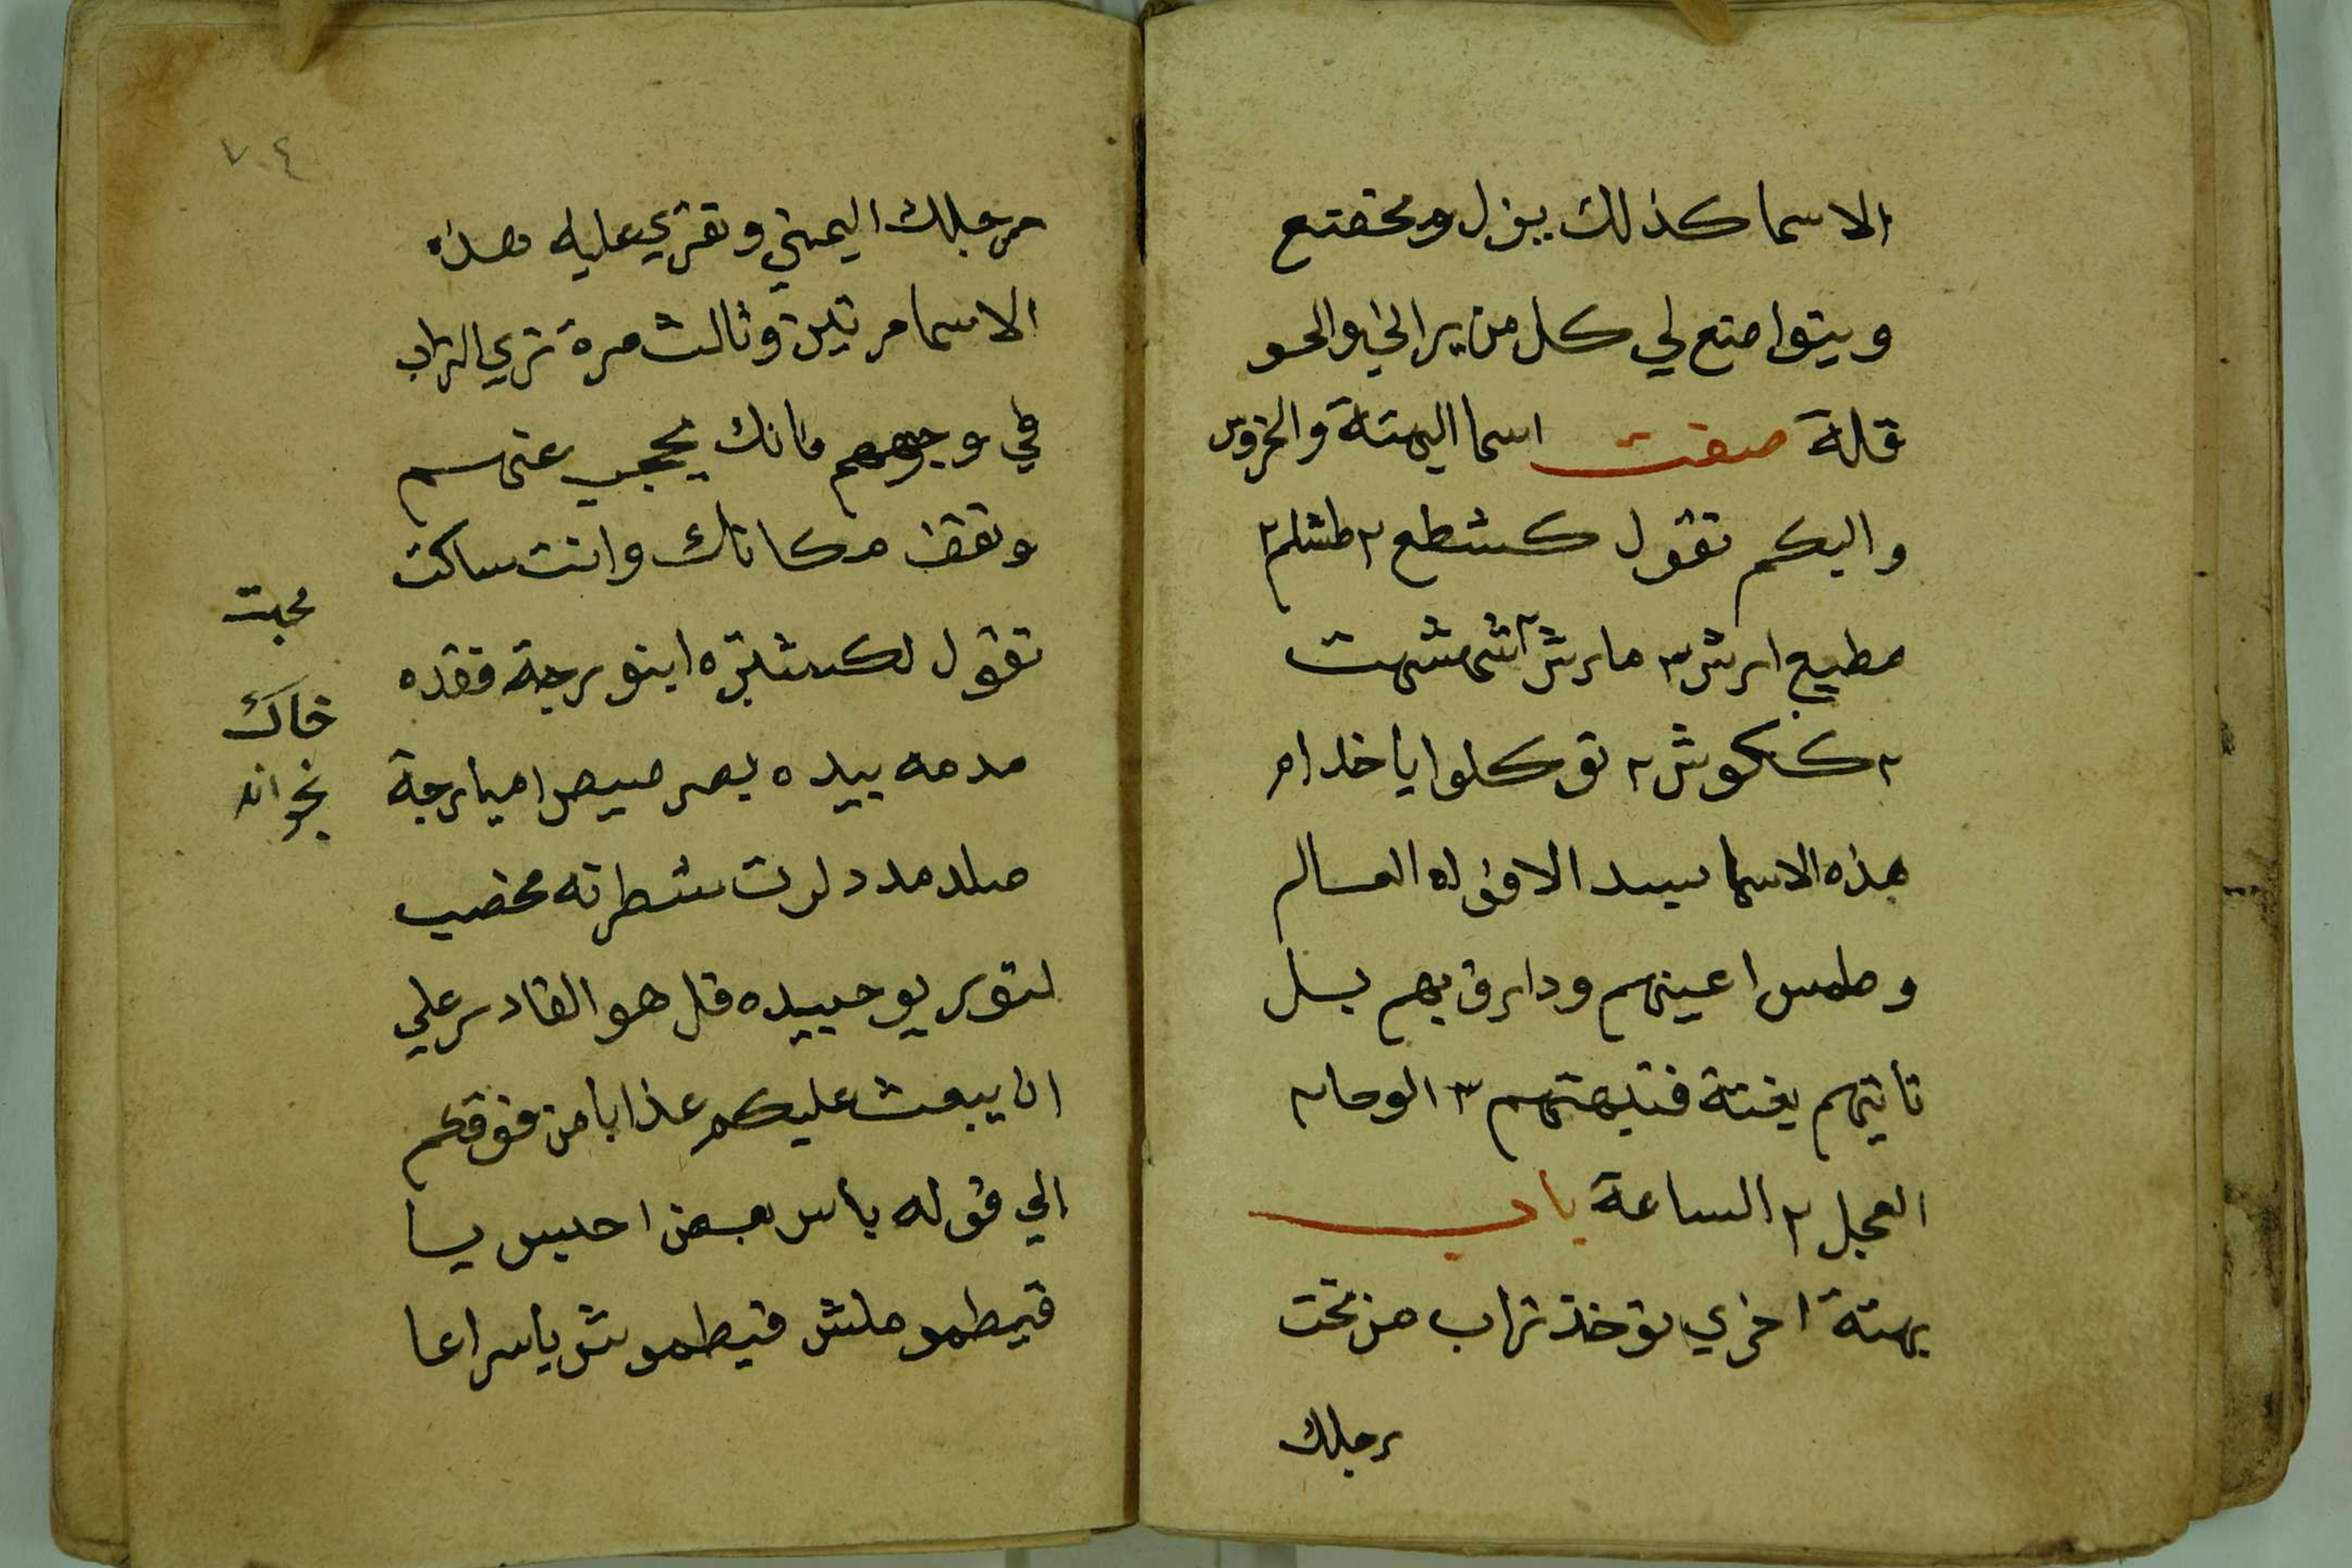 الاسما كذلك يزل ومختع
ويتواضع لي كل من يراني والحو
قلة صفت اسما البهتة والخروس
والبكم تقول كشطع ٢ طشلم ٢
مطيع ارش ٣ مارش ٢ شمشهت
٢ ككوش ٢ توكلوا يا خدام
هذه الاسما بسد الافواه العسالم
وطمس اعينهم ودارق بهم بل
تاتيهم بغتة فتبهتهم ٣ الوحا ٢
العجل ٢ الساعة باب
بهتة اخري توخذ تراب من تحت
رجلك
٧٤
رجلك اليمني وتقري عليه هذه
الاسما مرتين وثالث مرة ترمي التراب
في وجوههم فانك تحجب عنهم
وتقف مكانك وانت ساكت
تقول لكشلتره اينو رجة فقده
مدمه بيده بصر صيص اميارجة
صلد مدد لرت شطرته مخضب
لتور يو حبيده قل هو القادر علي
ان يبعث عليكم عذابا من فوقكم
الي قوله باس بعض احبس يا
قيطمو ملش قيطموش ياسراعا
محبت
خاك
بخواند